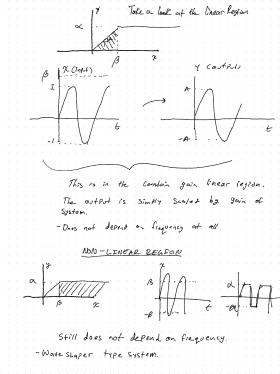 y
Take a look at the linear Region
α
β
x
β
x (Input)
y (Output)
1
A
t
t
-1
-A
This is in the constain gain linear region.
The output is simply scaled by gain of
system.
- Does not depend on frequency at all
NON-LINEAR REGION
y
x
α
β
α
β
x
-β
t
-α
Still does not depend on frequency.
- Waveshaper type system.